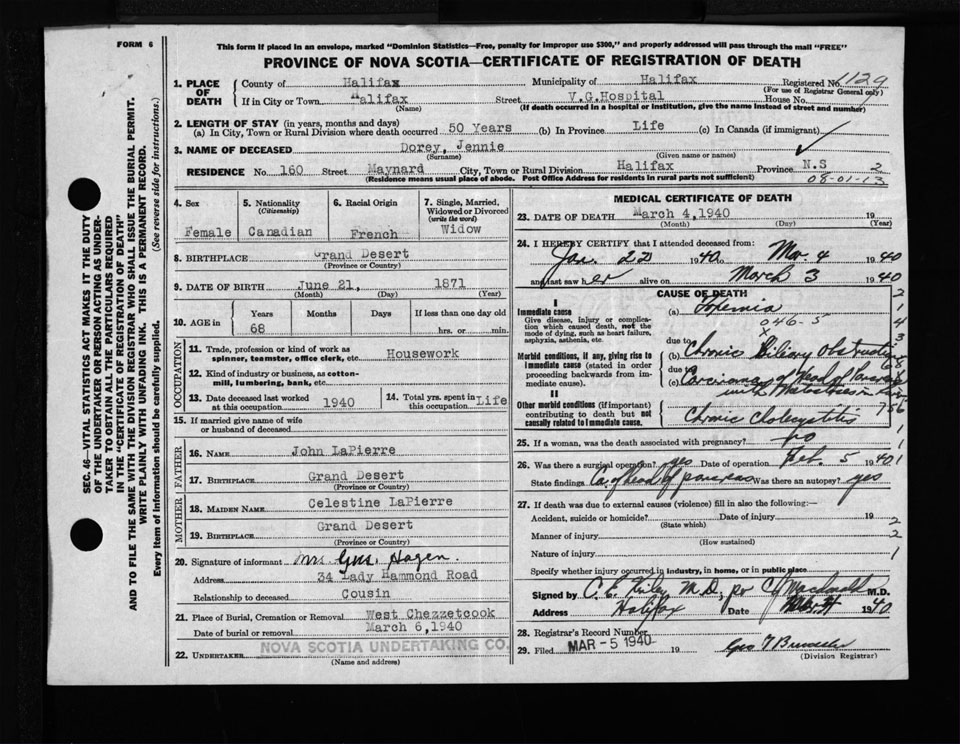 FORM 6
This form if placed in an envelope, marked "Dominion Statistics—Free, penalty for improper use $300," and properly addressed will pass through the mail "FREE"
PROVINCE OF NOVA SCOTIA—CERTIFICATE OF REGISTRATION OF DEATH
SEC. 46—VITAL STATISTICS ACT MAKES IT THE DUTY
OF THE UNDERTAKER OR PERSON ACTING AS UNDER-
TAKER TO OBTAIN ALL THE PARTICULARS REQUIRED
IN THE "CERTIFICATE OF REGISTRATION OF DEATH"
AND TO FILE THE SAME WITH THE DIVISION REGISTRAR WHO SHALL ISSUE THE BURIAL PERMIT.
WRITE PLAINLY WITH UNFADING INK. THIS IS A PERMANENT RECORD.
Every item of Information should be carefully supplied. (See reverse side for instructions.)
1. PLACE OF DEATH County of Halifax Municipality of Halifax Registered No. 1129
(For use of Registrar General only)
If in City or Town Halifax Street V.G.Hospital House No.
(Name) (If death occurred in a hospital or institution, give the name instead of street and number)
2. LENGTH OF STAY (in years, months and days)
(a) In City, Town or Rural Division where death occurred 50 Years (b) In Province Life (c) In Canada (if immigrant)
3. NAME OF DECEASED Dorey, Jennie
(Surname) (Given name or names)
RESIDENCE No. 160 Street Maynard City, Town or Rural Division Halifax Province N.S 2
(Residence means usual place of abode. Post Office Address for residents in rural parts not sufficient) 08-01-13
4. Sex 5. Nationality (Citizenship) 6. Racial Origin 7. Single, Married, Widowed or Divorced (write the word)
Female Canadian French Widow
8. BIRTHPLACE Grand Desert
(Province or Country)
9. DATE OF BIRTH June 21, 1871
(Month) (Day) (Year)
10. AGE in Years Months Days If less than one day old
68 hrs. or min.
OCCUPATION
11. Trade, profession or kind of work as spinner, teamster, office clerk, etc. Housework
12. Kind of industry or business, as cotton-mill, lumbering, bank, etc.
13. Date deceased last worked at this occupation 1940 14. Total yrs. spent in this occupation Life
15. If married give name of wife or husband of deceased
FATHER
16. Name John LaPierre
17. Birthplace Grand Desert
(Province or Country)
MOTHER
18. Maiden Name Celestine LaPierre
19. Birthplace Grand Desert
(Province or Country)
20. Signature of informant Mrs. Gus. Hagen.
Address 34 Lady Hammond Road
Relationship to deceased Cousin
21. Place of Burial, Cremation or Removal West Chezzetcook
Date of burial or removal March 6,1940
22. UNDERTAKER NOVA SCOTIA UNDERTAKING CO.
(Name and address)
MEDICAL CERTIFICATE OF DEATH
23. DATE OF DEATH March 4,1940 19
(Month) (Day) (Year)
24. I HEREBY CERTIFY that I attended deceased from:
Jan. 22 1940 to Mar. 4 1940
and last saw her alive on March 3 1940
CAUSE OF DEATH
I
Immediate cause (a) Toxemia
Give disease, injury or complication which caused death, not the mode of dying, such as heart failure, asphyxia, asthenia, etc.
046-5
due to
Morbid conditions, if any, giving rise to immediate cause (stated in order proceeding backwards from immediate cause).
(b) Chronic Biliary Obstruction
due to
(c) Carcinoma of Head of Pancreas
with
II
Other morbid conditions (if important) contributing to death but not causally related to immediate cause.
Chronic
25. If a woman, was the death associated with pregnancy? no
26. Was there a surgical operation? yes Date of operation Feb. 5 1940
State findings Ca. of head of pancreas Was there an autopsy? yes
27. If death was due to external causes (violence) fill in also the following:—
Accident, suicide or homicide? Date of injury 19
(State which)
Manner of injury
(How sustained)
Nature of injury
Specify whether injury occurred in industry, in home, or in public place
Signed by M.D.
Address Halifax Date 1940
28. Registrar's Record Number
29. Filed MAR - 5 1940 19
(Division Registrar)